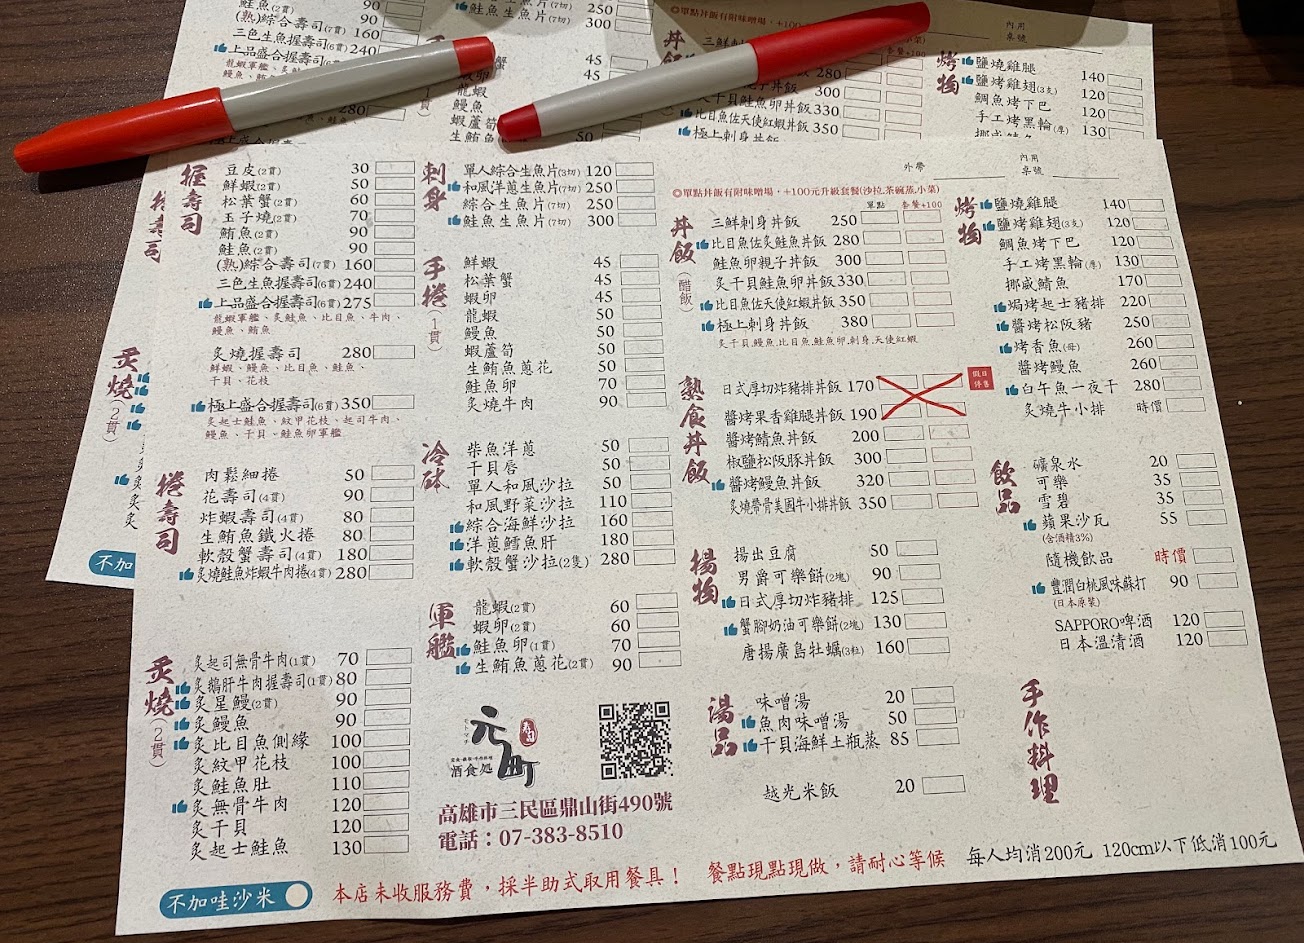 鮭魚(2貫) 90
(熟)綜合壽司(7貫) 160
三色生魚握壽司(6貫) 240
上品盛合握壽司(6貫)
鮭魚生魚片(7切) 250
300
45
45
鰻魚
蝦蘆筍
◎單點丼飯有附味噌場，+100元
內用
桌號
丼飯
280
炙干貝鮭魚卵丼飯330
比目魚佐天使紅蝦丼飯 350
極上刺身丼飯
烤物
鹽燒雞腿 140
鹽烤雞翅(3支) 120
鯛魚烤下巴 120
手工烤黑輪(厚) 130
炙燒(2貫)
不加
握壽司
豆皮(2貫) 30
鮮蝦(2貫) 50
松葉蟹(2貫) 60
玉子燒(2貫) 70
鮪魚(2貫) 90
鮭魚(2貫) 90
(熟)綜合壽司(7貫) 160
三色生魚握壽司(6貫) 240
上品盛合握壽司(6貫) 275
龍蝦軍艦、炙鮭魚、比目魚、牛肉、
鰻魚、鮪魚
炙燒握壽司 280
鮮蝦、鰻魚、比目魚、鮭魚、
干貝、花枝
極上盛合握壽司(6貫) 350
炙起士鮭魚、紋甲花枝、起司牛肉、
鰻魚、干貝、鮭魚卵軍艦
捲壽司
肉鬆細捲 50
花壽司(4貫) 90
炸蝦壽司(4貫) 80
生鮪魚鐵火捲 80
軟殼蟹壽司(4貫) 180
炙燒鮭魚炸蝦牛肉捲(4貫) 280
炙燒(2貫)
炙起司無骨牛肉(1貫) 70
炙鵝肝牛肉握壽司(1貫) 80
炙星鰻(2貫) 90
炙鰻魚 90
炙比目魚側緣 100
炙紋甲花枝 100
炙鮭魚肚 110
炙無骨牛肉 120
炙干貝 120
炙起士鮭魚 130
不加哇沙米
刺身
單人綜合生魚片(3切) 120
和風洋蔥生魚片(7切) 250
綜合生魚片(7切) 250
鮭魚生魚片(7切) 300
手捲(1貫)
鮮蝦 45
松葉蟹 45
蝦卵 45
龍蝦 50
鰻魚 50
蝦蘆筍 50
生鮪魚蔥花 50
鮭魚卵 70
炙燒牛肉 90
冷砵
柴魚洋蔥 50
干貝唇 50
單人和風沙拉 50
和風野菜沙拉 110
綜合海鮮沙拉 160
洋蔥鱈魚肝 180
軟殼蟹沙拉(2隻) 280
軍艦
龍蝦(2貫) 60
蝦卵(2貫) 60
鮭魚卵(1貫) 70
生鮪魚蔥花(2貫) 90
元町
壽司
酒食処
高雄市三民區鼎山街490號
電話：07-383-8510
外帶
內用
桌號
◎單點丼飯有附味噌場，+100元升級套餐(沙拉.茶碗蒸.小菜)
單點 套餐+100
丼飯(醋飯)
三鮮刺身丼飯 250
比目魚佐炙鮭魚丼飯 280
鮭魚卵親子丼飯 300
炙干貝鮭魚卵丼飯 330
比目魚佐天使紅蝦丼飯 350
極上刺身丼飯 380
炙干貝.鰻魚.比目魚.鮭魚卵.刺身.天使紅蝦
熟食丼飯
日式厚切炸豬排丼飯 170
假日
停售
醬烤果香雞腿丼飯 190
醬烤鯖魚丼飯 200
椒鹽松阪豚丼飯 300
醬烤鰻魚丼飯 320
炙燒帶骨美國牛小排丼飯 350
揚物
揚出豆腐 50
男爵可樂餅(2塊) 90
日式厚切炸豬排 125
蟹腳奶油可樂餅(2塊) 130
唐揚廣島牡蠣(3粒) 160
湯品
味噌湯 20
魚肉味噌湯 50
干貝海鮮土瓶蒸 85
越光米飯 20
烤物
鹽燒雞腿 140
鹽烤雞翅(3支) 120
鯛魚烤下巴 120
手工烤黑輪(厚) 130
挪威鯖魚 170
焗烤起士豬排 220
醬烤松阪豬 250
烤香魚(母) 260
醬烤鰻魚 260
白午魚一夜干 280
炙燒牛小排 時價
飲品
礦泉水 20
可樂 35
雪碧 35
蘋果沙瓦 55
(含酒精3%)
隨機飲品 時價
豐潤白桃風味蘇打 90
(日本原裝)
SAPPORO啤酒 120
日本溫清酒 120
手作料理
本店未收服務費，採半助式取用餐具！ 餐點現點現做，請耐心等候
每人均消200元 120cm以下低消100元